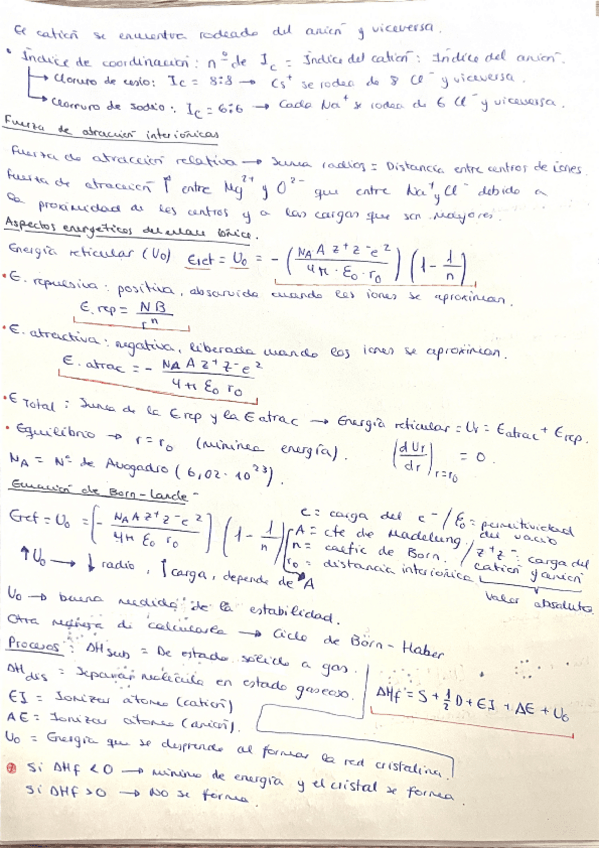 El catión se encuentra rodeado del anión y viceversa.
• Índice de coordinación: nº de Ic = Índice del catión: Índice del anión.
→ Cloruro de cesio: Ic = 8:8 → Cs⁺ se rodea de 8 Cl⁻ y viceversa.
→ Clorruro de sodio: Ic = 6:6 → Cada Na⁺ se rodea de 6 Cl⁻ y viceversa.
Fuerza de atracción interiónicas
Fuerza de atracción relativa → Suma radios = Distancia entre centros de iones.
Fuerza de atracción ↑ entre Mg²⁺ y O²⁻ que entre Na⁺ y Cl⁻ debido a
la proximidad de los centros y a las cargas que son mayores.
Aspectos energéticos del enlace iónico.
Energía reticular (U₀) Eret = U₀ = - (NA A z⁺ z⁻ e² / 4π · ε₀ · r₀) (1 - 1/n)
• E. repulsiva: positiva, absorvida cuando los iones se aproximan.
E. rep = NB / rⁿ
• E. atractiva: negativa, liberada cuando los iones se aproximan.
E. atrac = - NA A z⁺ z⁻ e² / 4π ε₀ r₀
• E Total: Suma de la E rep y la E atrac → Energía reticular = Ur = Eatrac + Erep.
• Equilibrio → r = r₀ (mínima energía). |dUr/dr| r=r₀ = 0.
NA = Nº de Avogadro (6,02 · 10²³).
Ecuación de Born-Lande
Eret = U₀ = [- NA A z⁺ z⁻ e² / 4π ε₀ r₀] (1 - 1/n)
e = carga del e⁻ / ε₀ = permitividad del vacío
A = cte de Madelung / z⁺ z⁻ = carga del catión y anión
n = coefic de Born.
r₀ = distancia interiónica
Valor absoluto
↑ U₀ → ↓ radio, ↑ carga, depende de A
U₀ → buena medida de la estabilidad.
Otra manera de calcularla → Ciclo de Born-Haber
Procesos: ΔHsub = De estado sólido a gas.
ΔH dis = Separar molécula en estado gaseoso.
ΔHf = S + ½ D + EI + AE + U₀
EI = Ionizar átomo (catión)
AE = Ionizar átomo (anión).
U₀ = Energía que se desprende al formar la red cristalina.
Si ΔHf < 0 → mínimo de energía y el cristal se forma.
Si ΔHf > 0 → No se forma.